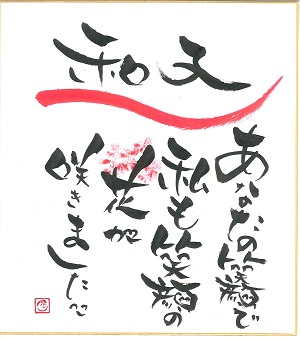 和文
あなたの笑顔で
私も笑顔の
花が
咲きました